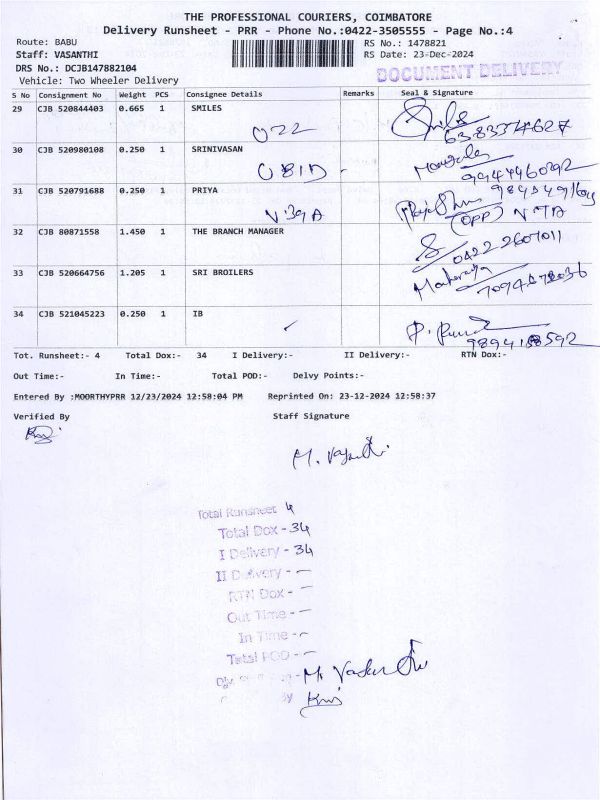 THE PROFESSIONAL COURIERS, COIMBATORE
Delivery Runsheet - PRR - Phone No.:0422-3505555 - Page No.:4
Route: BABU RS No.: 1478821
Staff: VASANTHI RS Date: 23-Dec-2024
DRS No.: DCJB147882104
DOCUMENT DELIVERY
Vehicle: Two Wheeler Delivery
S No Consignment No Weight PCS Consignee Details Remarks Seal & Signature
29 CJB 520844403 0.665 1 SMILES
30 CJB 520980108 0.250 1 SRINIVASAN
9944460292
31 CJB 520791688 0.250 1 PRIYA
(OPP)
32 CJB 80871558 1.450 1 THE BRANCH MANAGER
0422 2607011
33 CJB 520664756 1.205 1 SRI BROILERS
34 CJB 521045223 0.250 1 IB
Tot. Runsheet:- 4 Total Dox:- 34 I Delivery:- II Delivery:- RTN Dox:-
Out Time:- In Time:- Total POD:- Delvy Points:-
Entered By :MOORTHYPRR 12/23/2024 12:58:04 PM Reprinted On: 23-12-2024 12:58:37
Verified By Staff Signature
Total Runsheet 4
Total Dox - 34
I Delivery - 34
II Delivery - -
RTN Dox - -
Out Time - -
In Time - -
Total POD - -